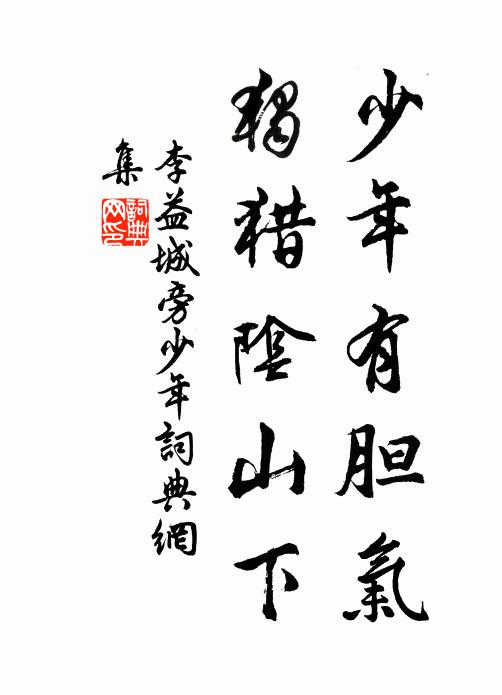 少年有胆氣
独猎陰山下
李益城旁少年詞典網
集
詞典
网印